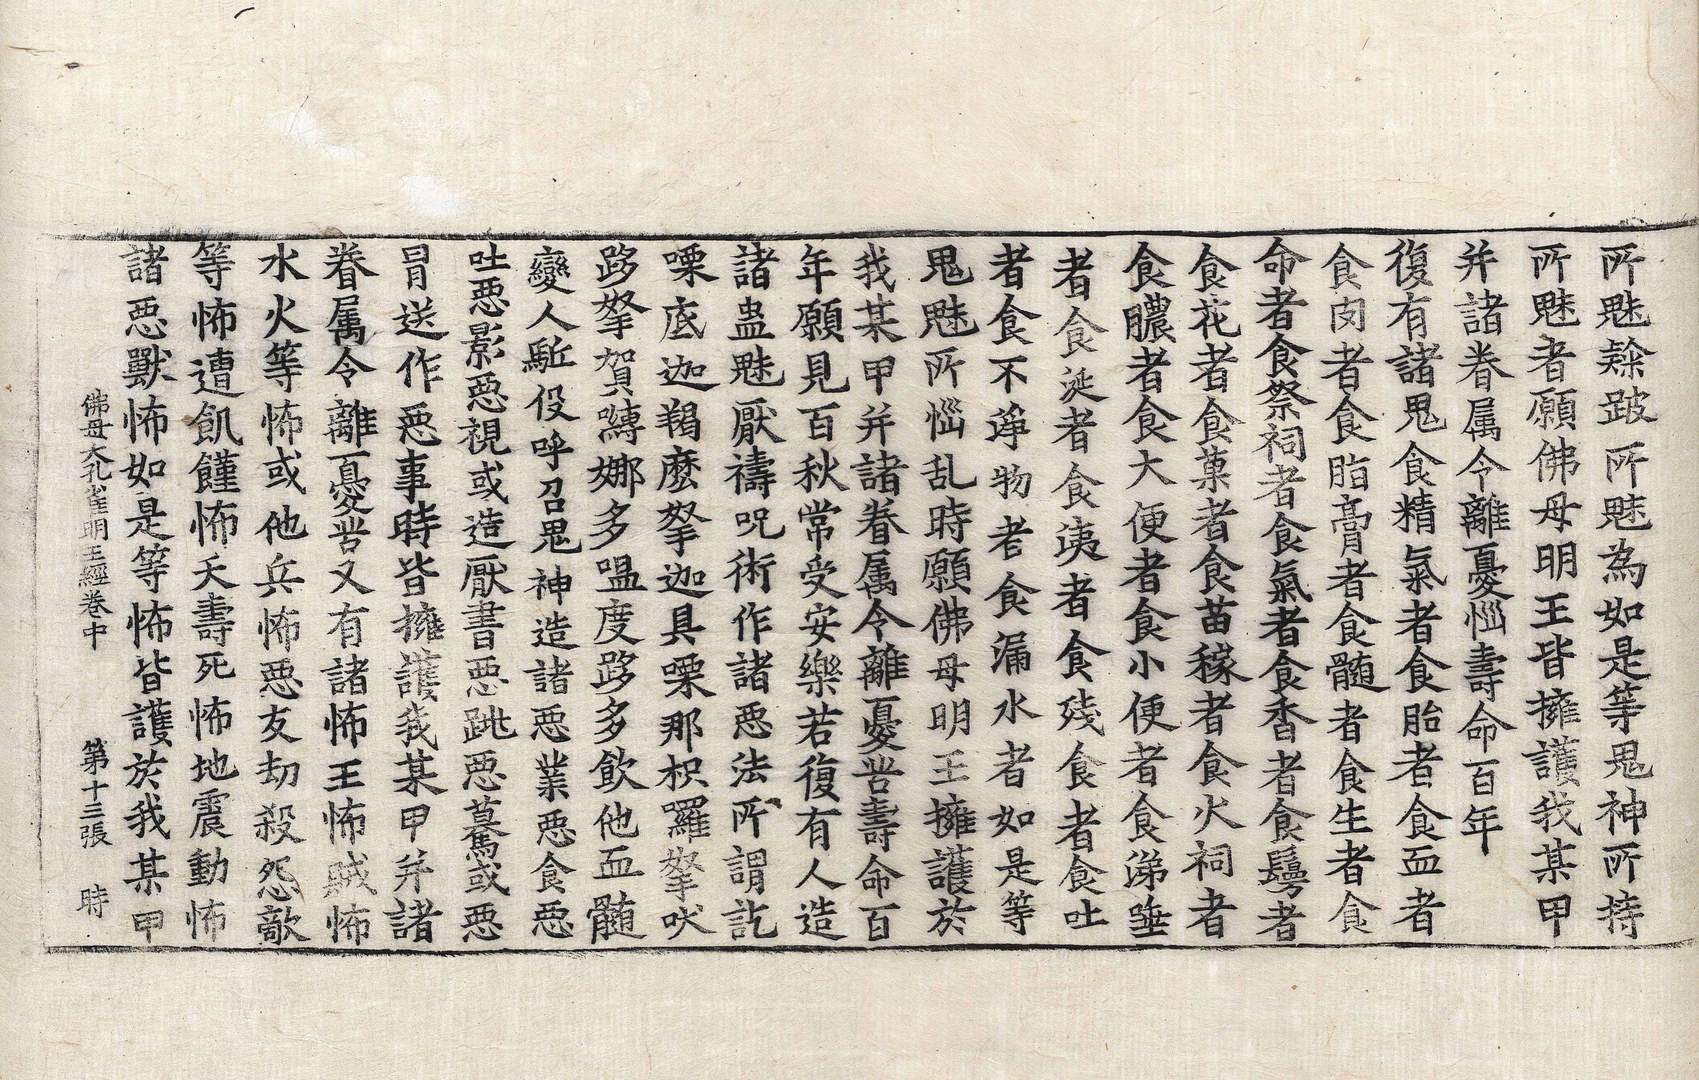 所魅𨽻跛所魅為如是等鬼神所持
所魅者願佛母明王皆擁護我某甲
并諸眷属令離憂惱壽命百年
復有諸鬼食精氣者食胎者食血者
食肉者食脂膏者食髓者食生者食
命者食祭祠者食氣者食香者食鬘者
食花者食菓者食苗稼者食火祠者
食膿者食大便者食小便者食涕唾
者食涎者食洟者食残食者食吐
者食不淨物者食漏水者如是等
鬼魅所惱乱時願佛母明王擁護於
我某甲并諸眷属令離憂苦壽命百
年願見百秋常受安樂若復有人造
諸蠱魅厭禱呪術作諸惡法所謂訖
㗚底迦羯麼拏迦具㗚那枳羅拏吠
跢拏賀嚩娜多嗢度跢多飲他血髓
變人駈役呼召鬼神造諸惡業惡食惡
吐惡影惡視或造厭書惡跳惡驀或惡
冐送作惡事時皆擁護我某甲并諸
眷属令離憂苦又有諸怖王怖賊怖
水火等怖或他兵怖惡友劫殺怨敵
等怖遭飢饉怖夭壽死怖地震動怖
諸惡獸怖如是等怖皆護於我某甲
佛母大孔雀明王經卷中 第十三張 時